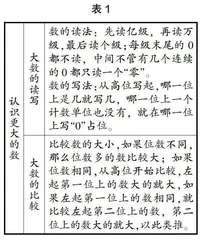 表 1
认识更大的数
大数的读写
数的读法：先读亿级，再读万
级，最后读个级；每级末尾的 0
都不读，中间不管有几个连续
的 0 都只读一个“零”。
数的写法：从高位写起，哪一位
上是几就写几，哪一位上一个
计数单位也没有，就在哪一位
上写“0”占位。
大数的比较
比较数的大小，如果位数不同，
那么位数多的数比较大；如果
位数相同，从高位开始比较，左
起第一位上的数大的就大，如
果左起第一位上的数相同，就
比较左起第二位上的数，第二
位上的数大的就大，以此类推。